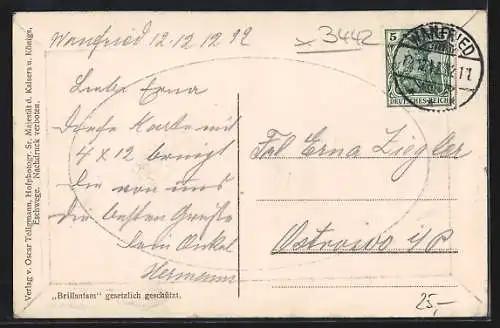 Wanfried 12.12 12 12
3442
WANFRIED
5
DEUTSCHES REICH
Liebe Erna
Diese Karte mit
4 x 12 bringt
Dir von uns
die besten Grüße
Dein Onkel
Hermann
Frl Erna Ziegler
Ostrowo i/P
25,-
„Brillantam" gesetzlich geschützt.
Verlag v. Oscar Tellgmann, Hofphotogr. Sr. Majestät d. Kaisers u. Königs.
Eschwege. Nachdruck verboten.